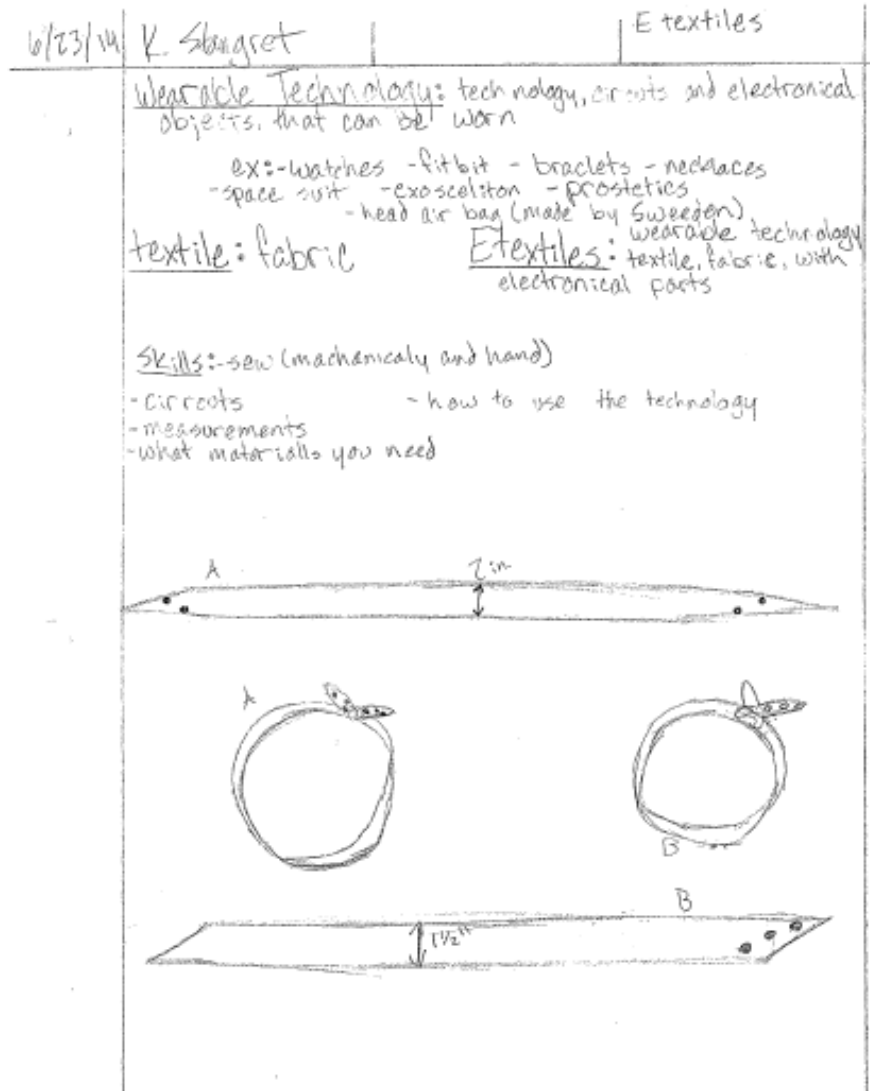 6/23/14 K. Stangret E textiles
Wearable Technology: technology, circuts and electronical
objects, that can be worn
ex:-watches -fitbit - braclets - necklaces
-space suit -exosceliton - prostetics
-head air bag (made by Sweeden)
textile: fabric
Etextiles: wearable technology
textile, fabric, with
electronical parts
Skills:-sew (machanicaly and hand)
-circuots - how to use the technology
-measurements
-what materialls you need
A 2 in
A
B
B
1 1/2"